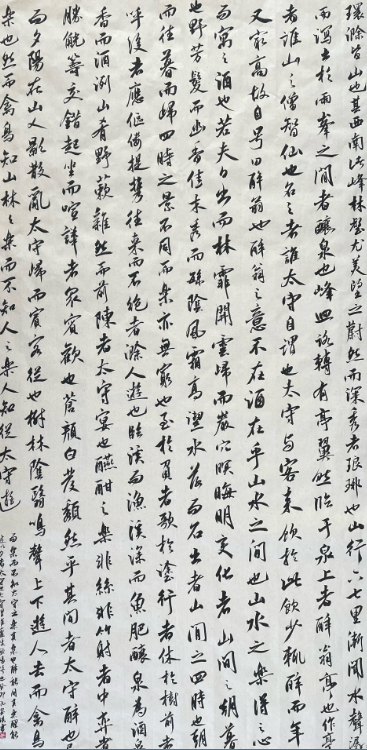 環滁皆山也其西南諸峰林壑尤美望之蔚然而深秀者琅琊也山行六七里漸聞水聲潺
而瀉出於兩峰之間者釀泉也峰回路轉有亭翼然臨于泉上者醉翁亭也作亭
者誰山之僧智仙也名之者誰太守自謂也太守與客來飲於此飲少輒醉而年
又最高故自號曰醉翁也醉翁之意不在酒在乎山水之間也山水之樂得之心
而寓之酒也若夫日出而林霏開雲歸而巖穴暝晦明變化者山間之朝暮
也野芳發而幽香佳木秀而繁陰風霜高潔水落而石出者山間之四時也朝
而往暮而歸四時之景不同而樂亦無窮也至於負者歌於塗行者休於樹前者
呼後者應傴僂提攜往來而不絕者滁人遊也臨溪而漁溪深而魚肥釀泉為酒泉
香而酒洌山肴野蔌雜然而前陳者太守宴也宴酣之樂非絲非竹射者中弈者
勝觥籌交錯起坐而喧譁者眾賓歡也蒼顏白髮頹然乎其間者太守醉也
而夕陽在山人影散亂太守歸而賓客從也樹林陰翳鳴聲上下遊人去而禽鳥
樂也然而禽鳥知山林之樂而不知人之樂人知從太守遊
而樂而不知太守之樂其樂也醉能同其樂醒能